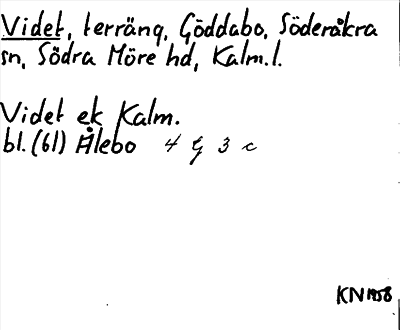 Videt, terräng, Göddabo, Söderåkra
sn, Södra Möre hd, Kalm.l.
Videt ek Kalm.
bl. (61) Ålebo 4 G 3 c
KN 1958